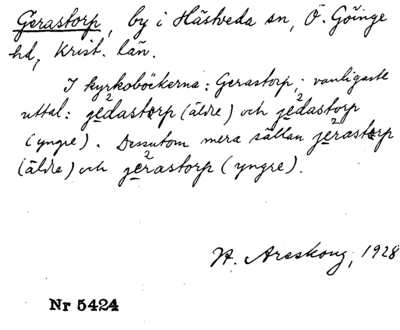 Gerastorp, by i Hästveda sn, Ö. Göinge
hd, Krist. län.
I kyrkoböckerna: Gerastorp; vanligaste
uttal: je2dastorp (äldre) och je2dastorp
(yngre). Dessutom mera sällan je2rastorp
(äldre) och je2rastorp (yngre).
W. Areskoug, 1928
Nr 5424